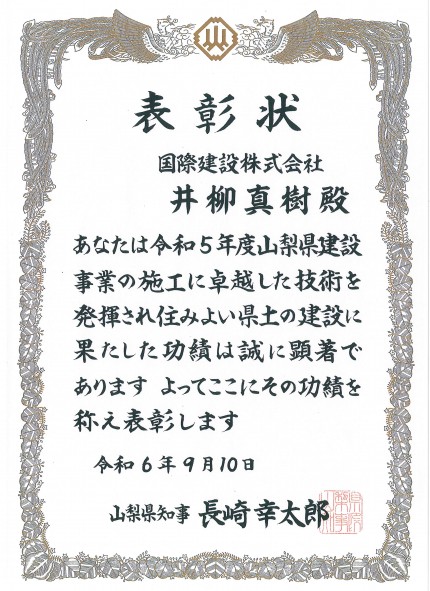 表彰状
国際建設株式会社
井柳真樹殿
あなたは令和5年度山梨県建設
事業の施工に卓越した技術を
発揮され住みよい県土の建設に
果たした功績は誠に顕著で
あります よってここにその功績を
称え表彰します
令和6年9月10日
山梨県知事 長崎幸太郎